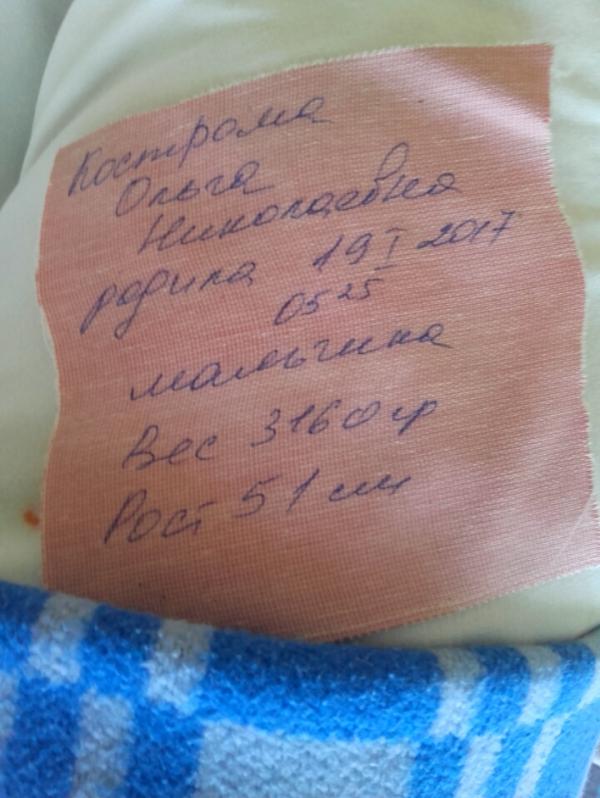 Кострома
Ольга
Николаевна
родила 19 I 2017
05 25
мальчика
Вес 3160 гр
Рост 51 см